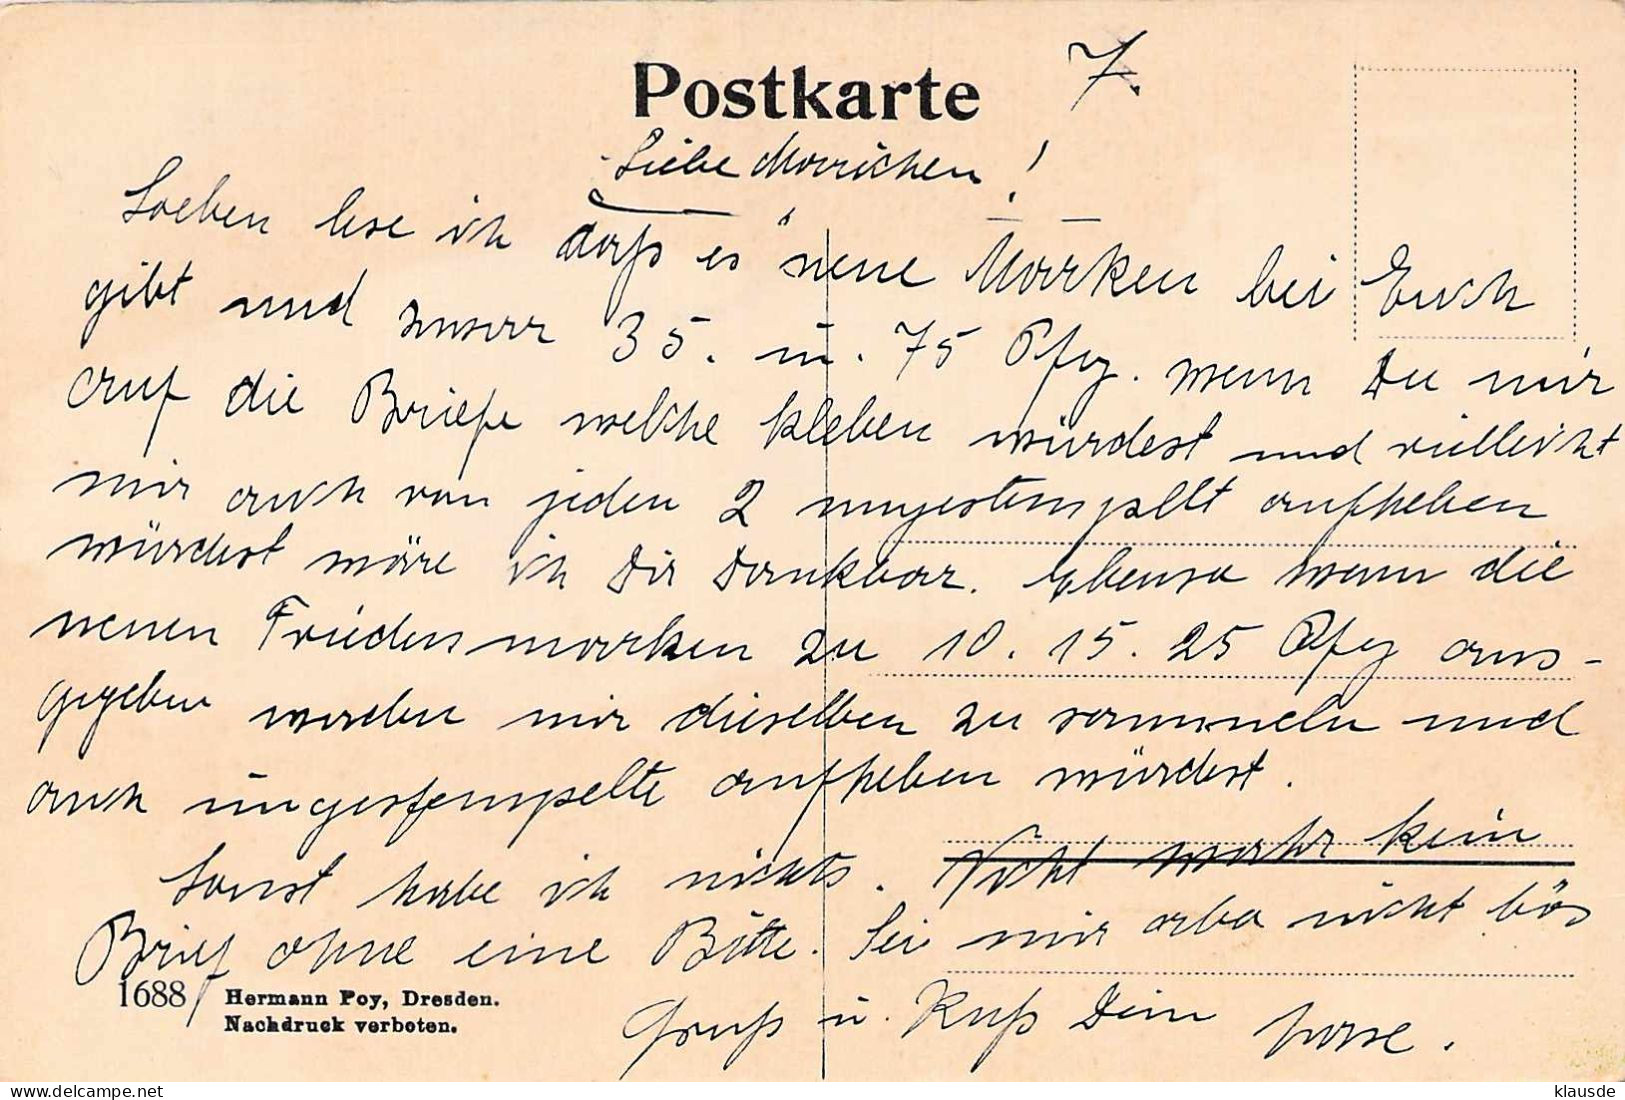 Postkarte 7.
Liebe Mariechen!
Soeben lese ich daß es neue Marken bei Euch
gibt und zwar 35. u. 75 Pfg. wenn Du mir
auf die Briefe welche kleben würdest und vielleicht
mir auch von jeden 2 ungestempelt aufheben
würdest wäre ich Dir Dankbar. Ebenso wenn die
neuen Friedensmarken zu 10. 15. 25 Pfg aus-
gegeben werden mir dieselben zu sammeln und
auch ungestempelte aufheben würdest.
Sonst habe ich nichts. Nicht wahr kein
Brief ohne eine Bitte. Sei mir aba nicht bös
Gruß u. Kuß Dein
1688 Hermann Poy, Dresden.
Nachdruck verboten.
klausde